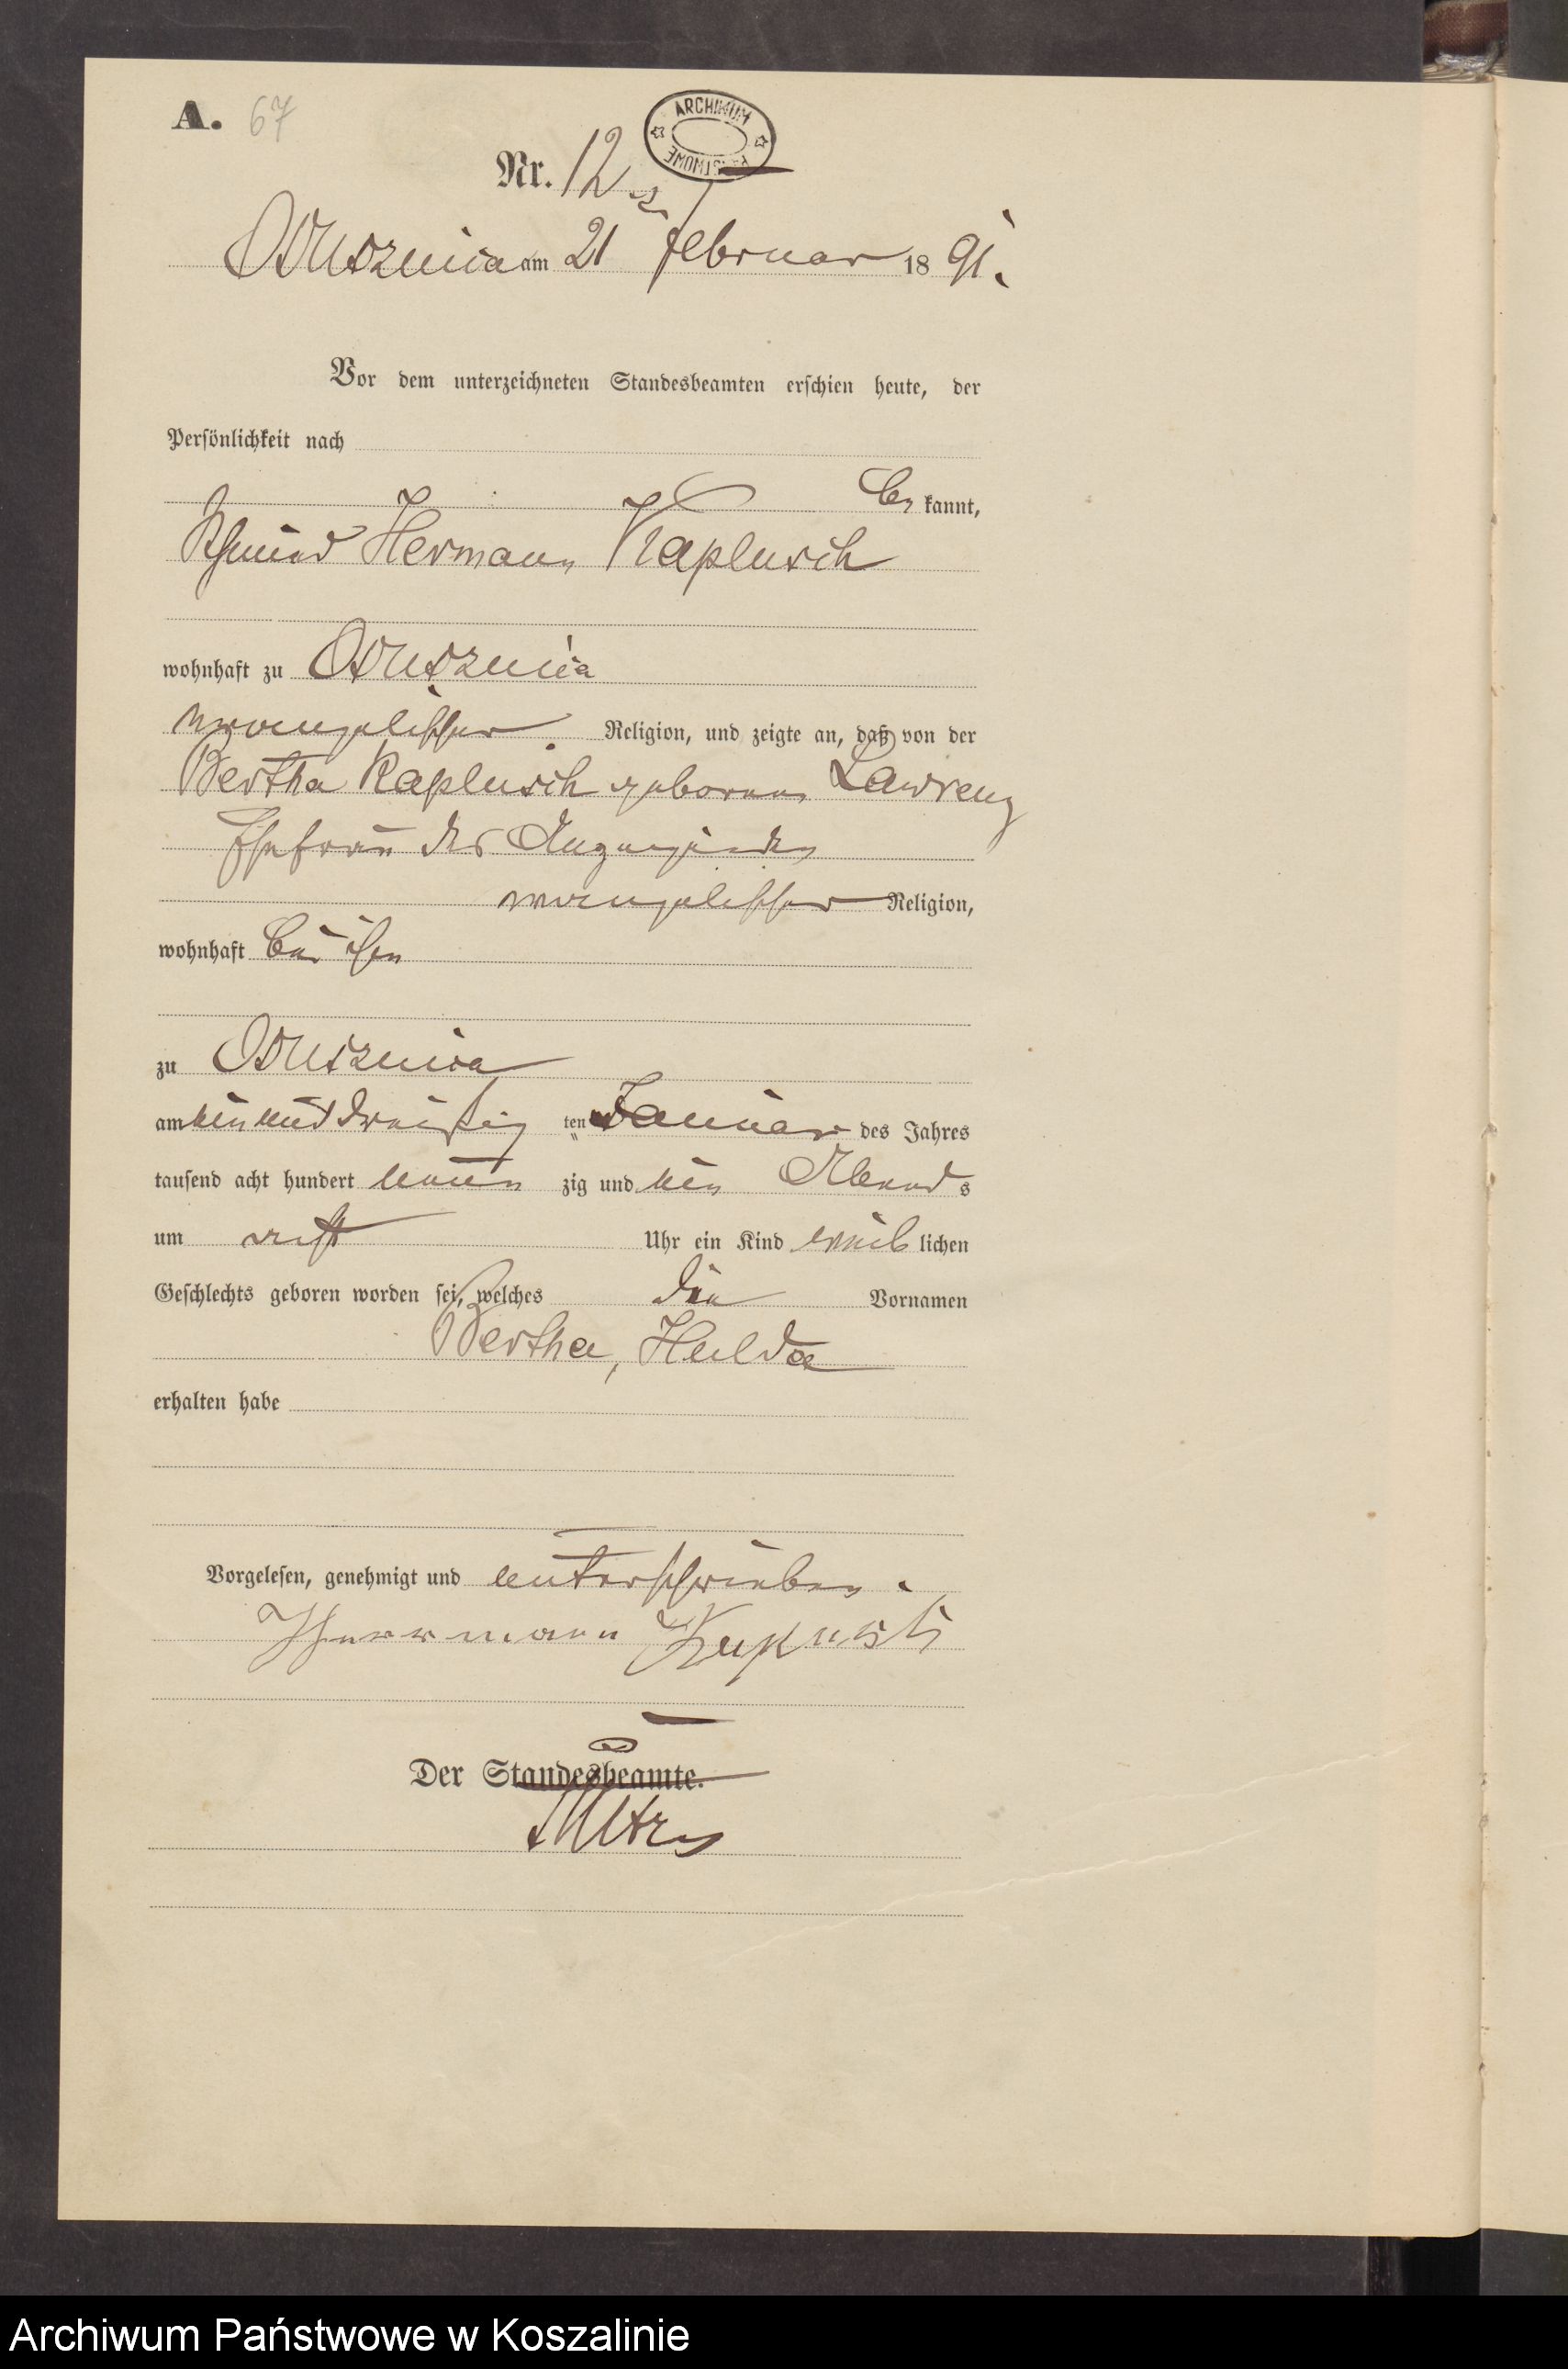 A. 67
ARCHIWUM PAŃSTWOWE
Nr. 12
Osusznica am 21 Februar 1891.
Vor dem unterzeichneten Standesbeamten erschien heute, der
Persönlichkeit nach
be kannt,
Schmied Hermann Kaplusch
wohnhaft zu Osusznica
evangelischer Religion, und zeigte an, daß von der
Bertha Kaplusch geborenen Lawrenz
Ehefrau des Anzeigenden
evangelischer Religion,
wohnhaft bei ihm
zu Osusznica
am ein und dreißig ten Januar des Jahres
tausend acht hundert neun zig und ein Abends
um acht Uhr ein Kind weib lichen
Geschlechts geboren worden sei, welches die Vornamen
Bertha, Hulda
erhalten habe
Vorgelesen, genehmigt und unterschrieben.
Herrmann
Der Standesbeamte.
Archiwum Państwowe w Koszalinie